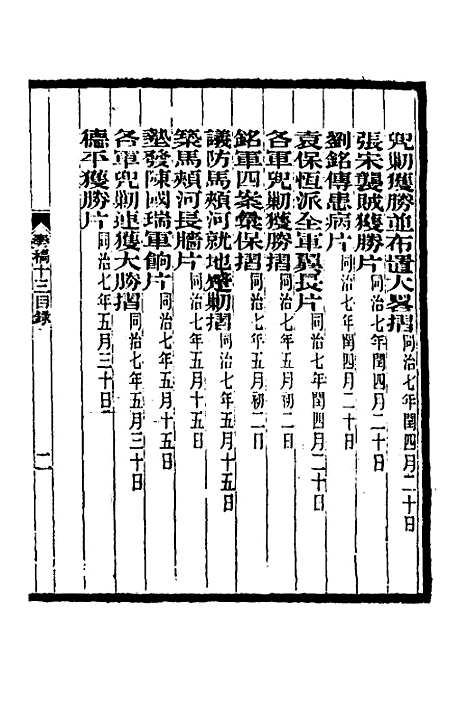 兜勦獲勝並布置大畧摺同治七年閏四月二十日
張宋襲賊獲勝片同治七年閏四月二十日
劉銘傳患病片同治七年閏四月二十日
袁保恆派全軍翼長片同治七年閏四月二十日
各軍兜勦獲勝摺同治七年五月初二日
銘軍四案彙保摺同治七年五月初二日
議防馬頰河就地蹙勦摺同治七年五月十五日
築馬頰河長牆片同治七年五月十五日
墊發陳國瑞軍餉片同治七年五月十五日
各軍兜勦連獲大勝摺同治七年五月三十日
德平獲勝片同治七年五月三十日
奏稿十三目錄
二